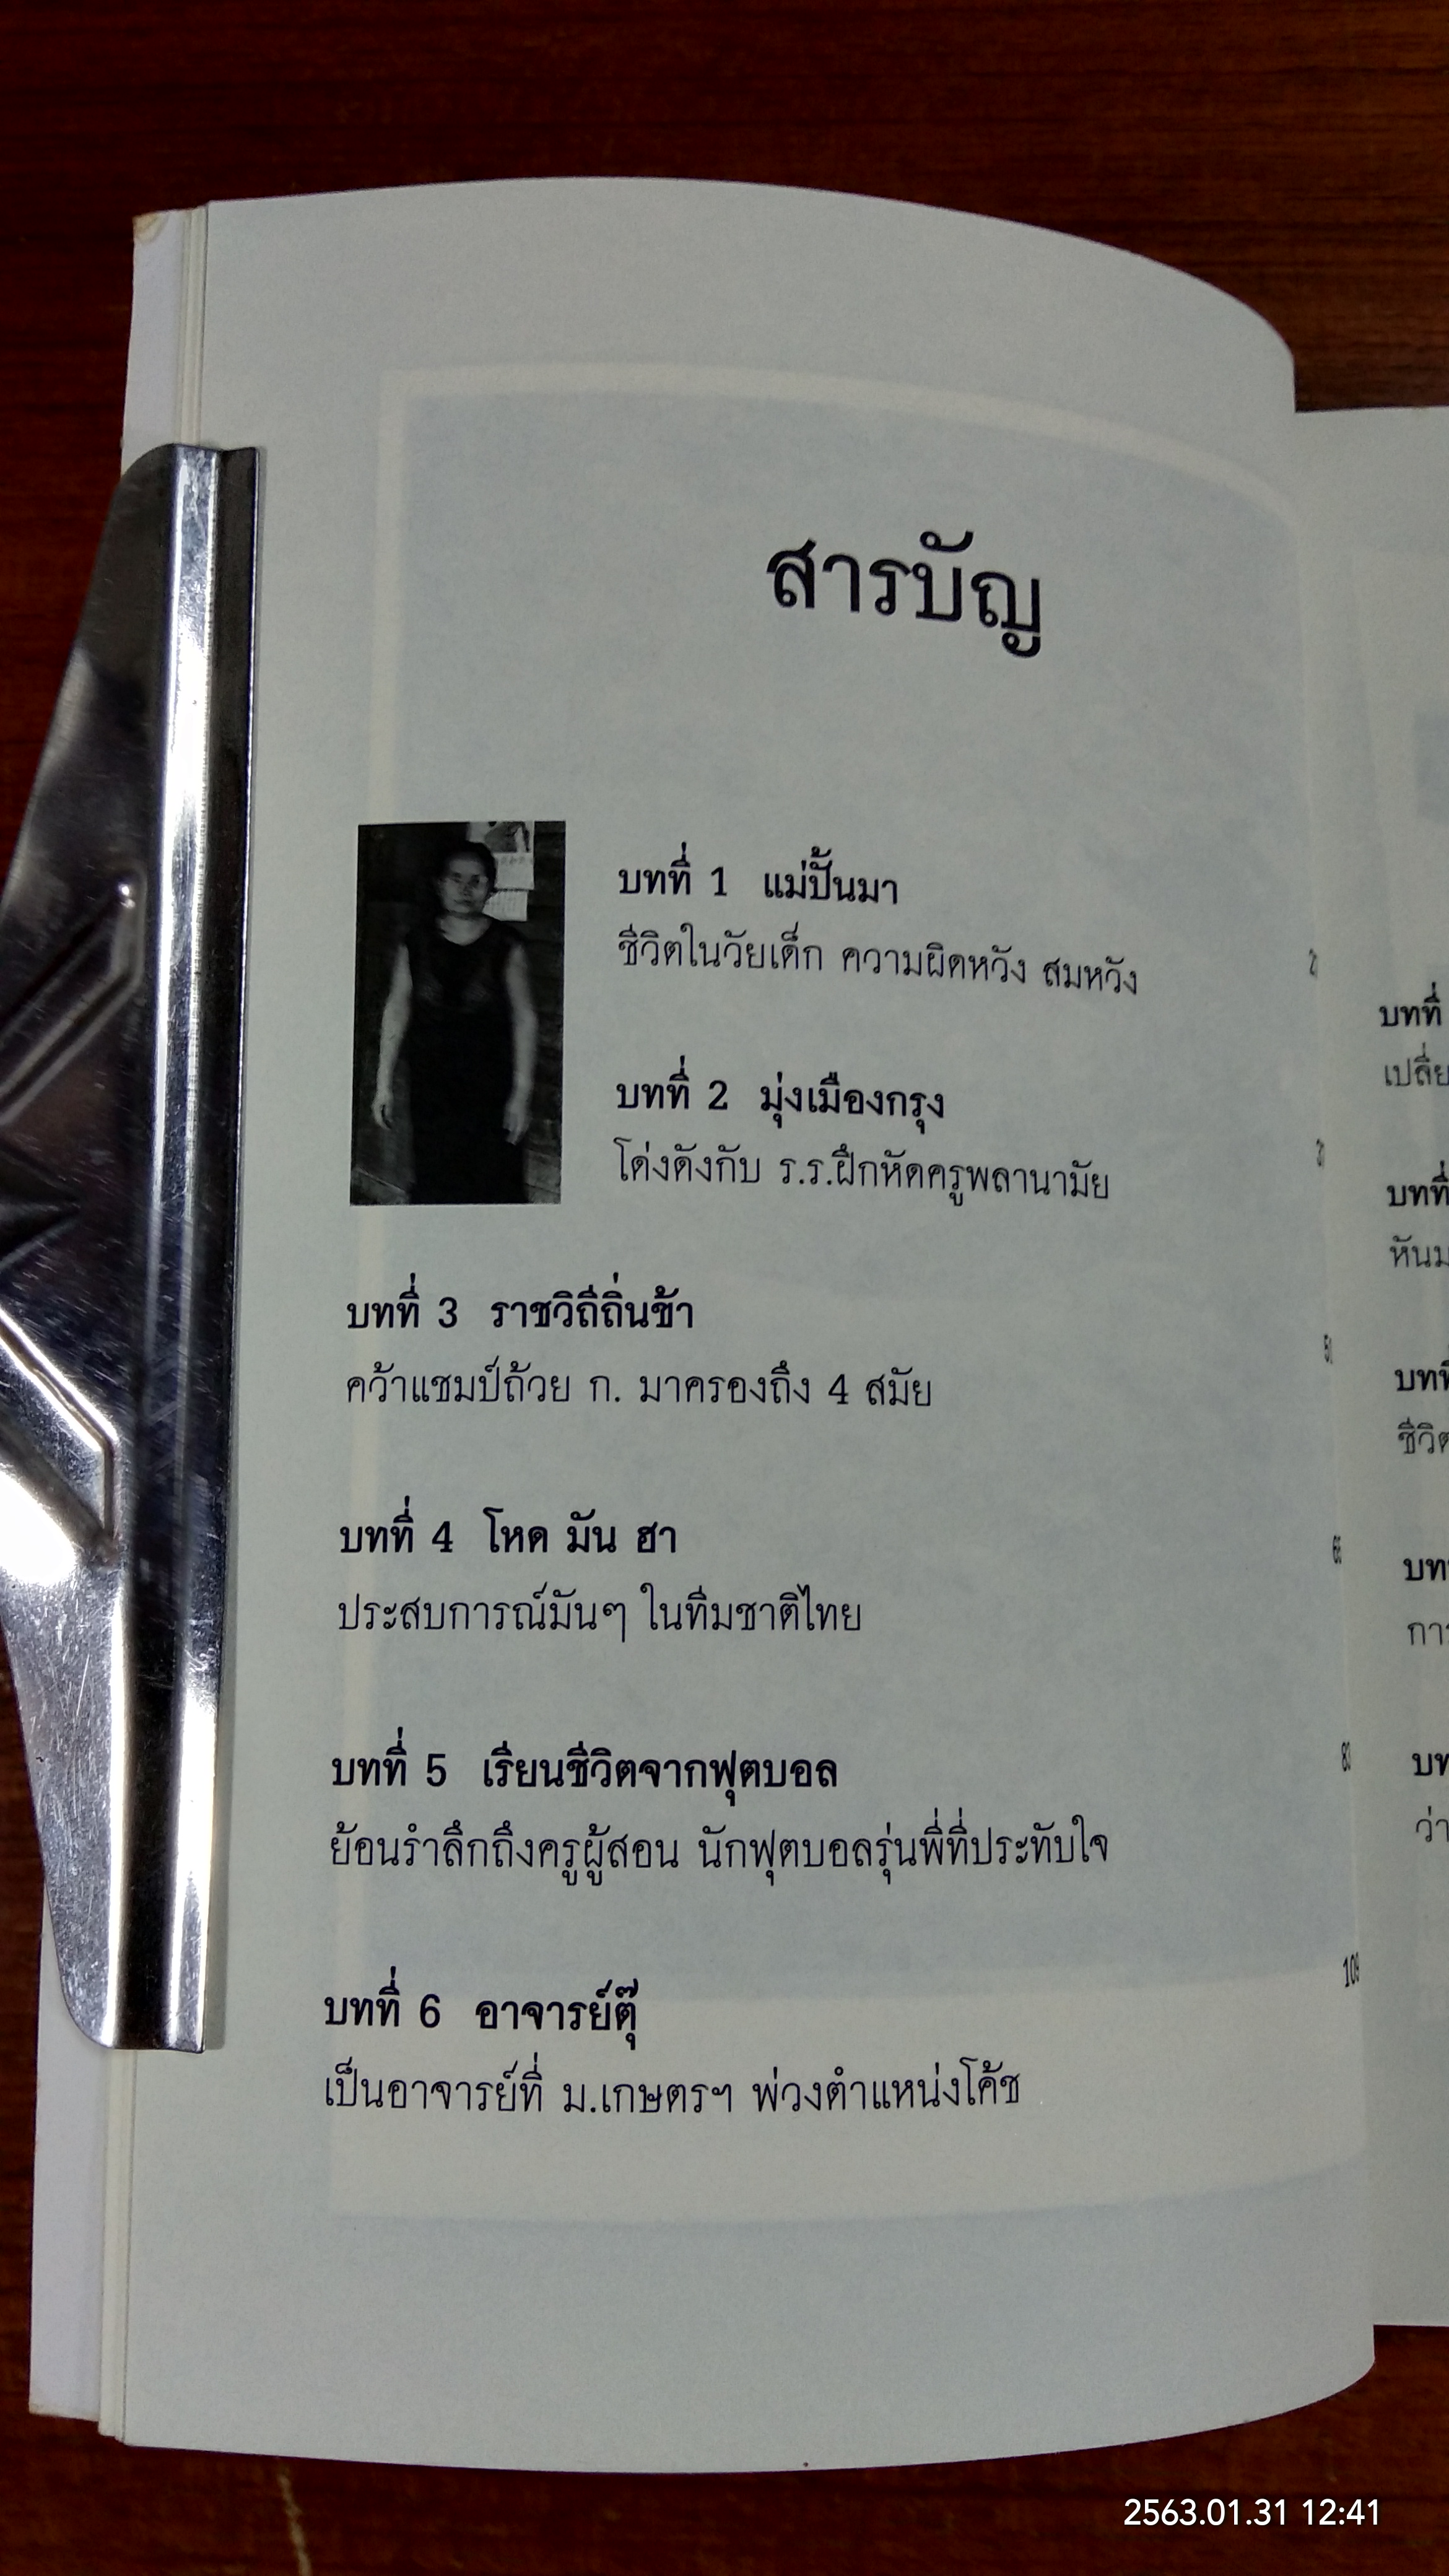 สารบัญ
บทที่ 1 แม่ปั้นมา
ชีวิตในวัยเด็ก ความผิดหวัง สมหวัง
บทที่ 2 มุ่งเมืองกรุง
โด่งดังกับ ร.ร.ฝึกหัดครูพลานามัย
บทที่ 3 ราชวิถีถิ่นข้า
คว้าแชมป์ถ้วย ก. มาครองถึง 4 สมัย
บทที่ 4 โหด มัน ฮา
ประสบการณ์มันๆ ในทีมชาติไทย
บทที่ 5 เรียนชีวิตจากฟุตบอล
ย้อนรำลึกถึงครูผู้สอน นักฟุตบอลรุ่นพี่ที่ประทับใจ
บทที่ 6 อาจารย์ตุ๊
เป็นอาจารย์ที่ ม.เกษตรฯ พ่วงตำแหน่งโค้ช
บทที่
บทที่
หันม
บทที่
2563.01.31 12:41